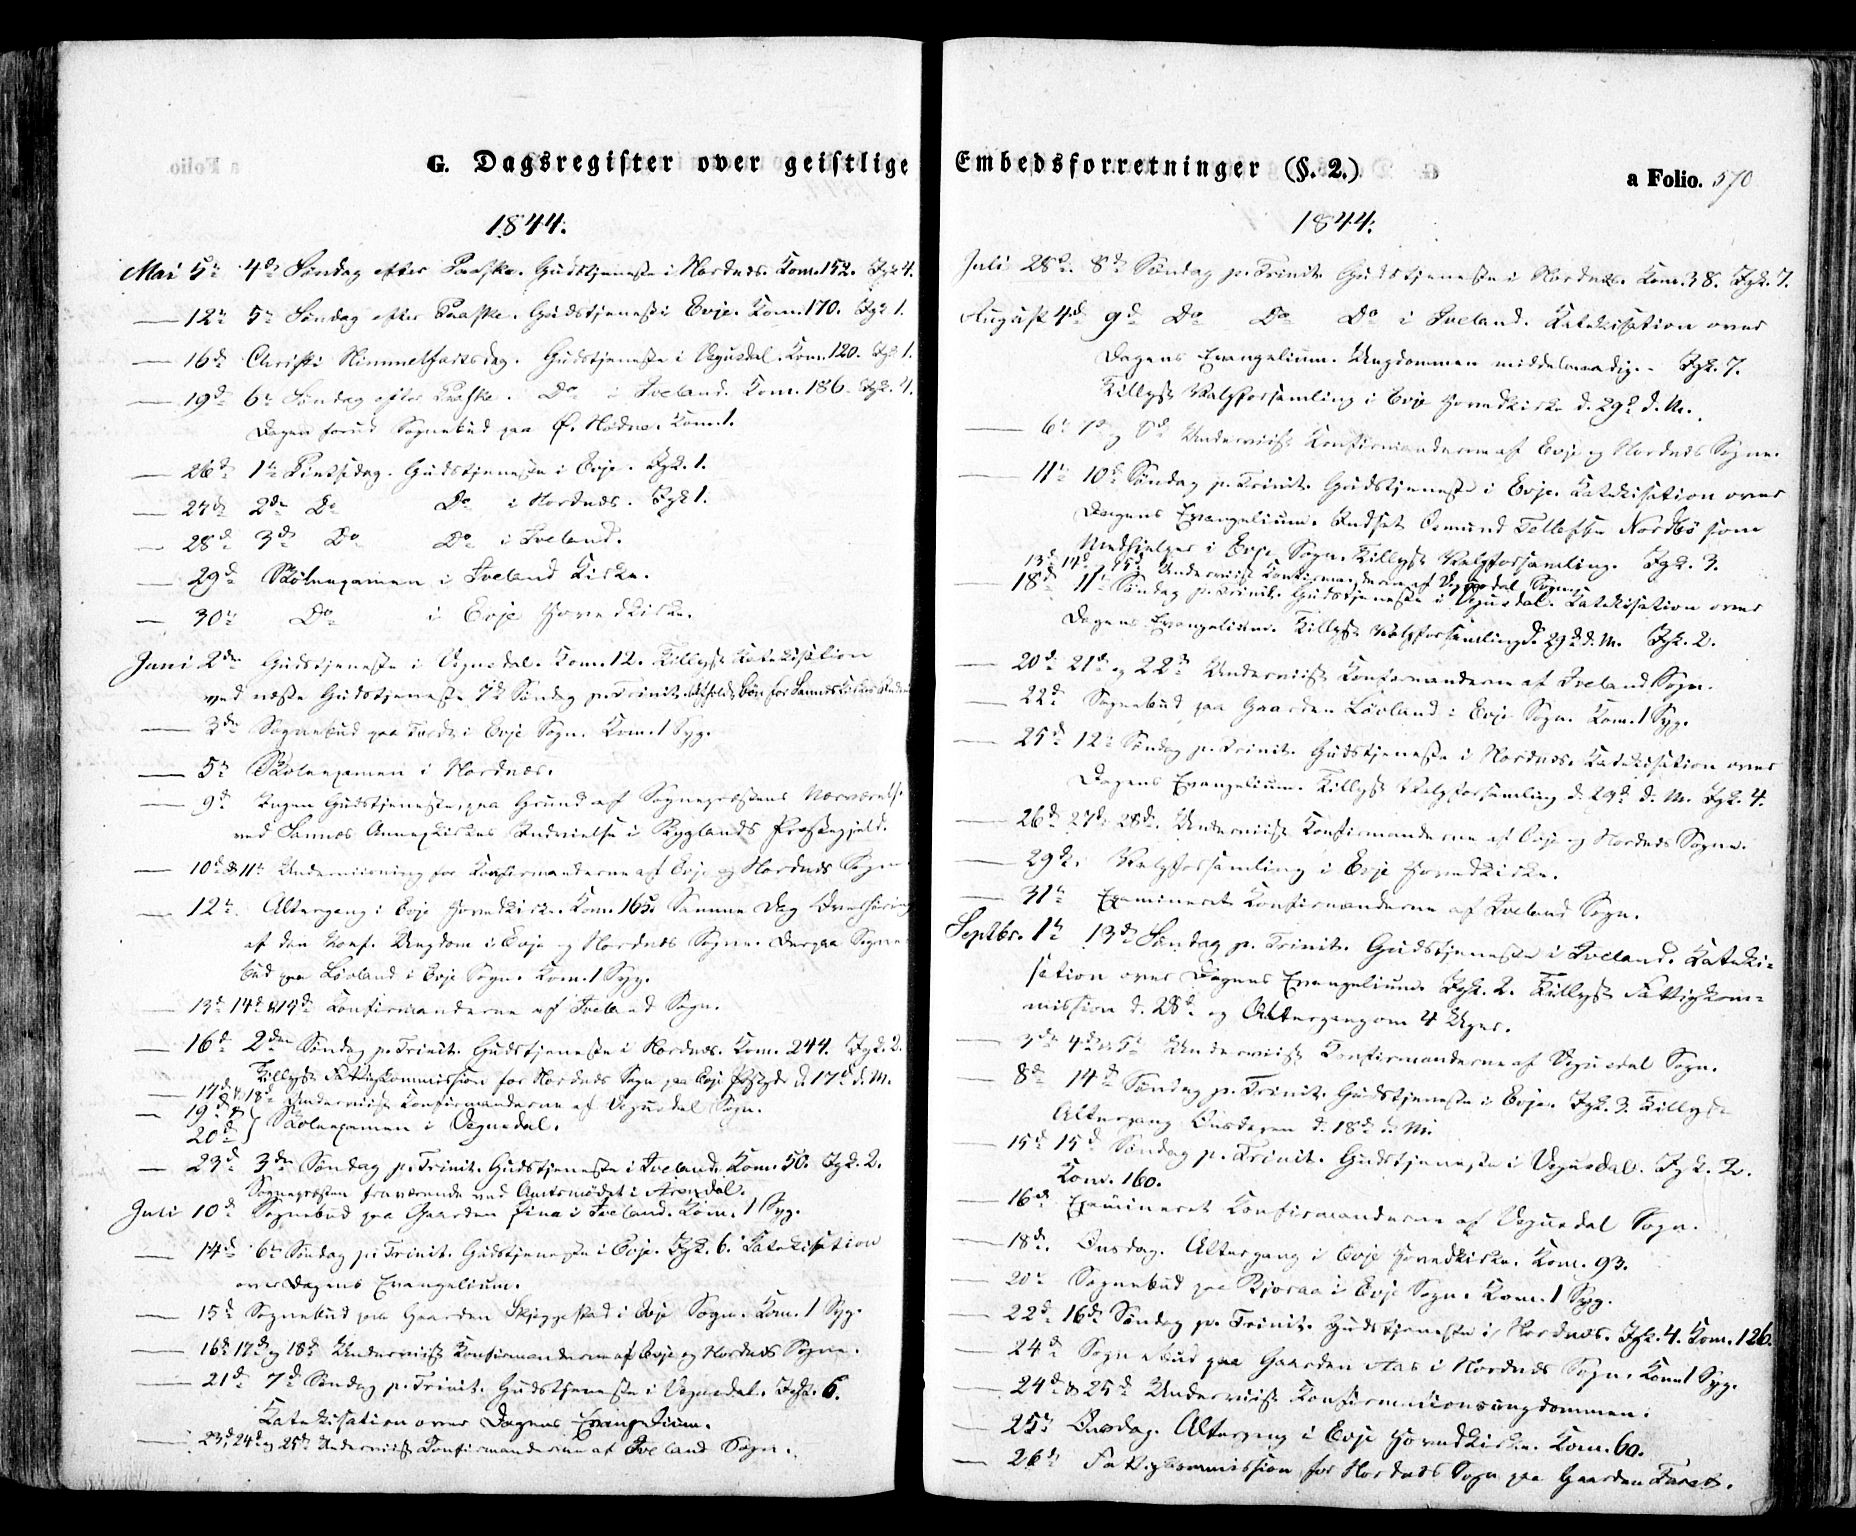 G. Dagsregister over geistlige
1844.
Mai 5te 4de Søndag efter Paaske. Gudstjeneste i Hordnes. Kom. 152. Igk 4.
— 12te 5te Søndag efter Paaske. Gudstjeneste i Evje. Kom. 170. Igk 1.
— 16de Christi Himmelfartsdag. Gudstjeneste i Vegusdal. Kom. 120. Igk 1.
— 19de 6te Søndag efter Paaske. Do i Iveland. Kom. 186. Igk. 4.
Dagen forud Sognebud paa Kom. 1.
— 26de 1te Pintsedag. Gudstjeneste i Evje. Igk. 1.
— 27de 2den Do Do i Hordnes. Igk 1.
— 28de 3die Do Do i Iveland.
— 29de Skoleexamen i Iveland Kirke.
— 30te Do i Evje Hovedkirke.
Juni 2den Gudstjeneste i Vegusdal. Kom. 12. Tillyst Katekisation
ved næste Gudstjeneste 7de Søndag p. Trinit. for
— 3die Sognebud paa i Evje Sogn. Kom. 1 Syg.
— 5te Skoleexamen i Hordnes.
— 9de Ingen Gudstjeneste, paa Grund af Sognepræstens Nærværelse
ved Sannes Annexkirkes Indvielse i Byglands Præstegjeld.
— 10de & 11te Underviisning for Konfirmanderne af Evje og Hordnes Sogne
— 12te Altergang i Evje Hovedkirke. Kom. 165. Samme Dag Overhøring
af den konf. Ungdom i Evje og Hordnes Sogne. Derpaa Sogne-
bud paa Løvland i Evje Sogn. Kom. 1 Syg.
— 13de 14de & 14de Konfirmanderne af Iveland Sogn.
— 16de 2den Søndag p. Trinit. Gudstjeneste i Hordnes. Kom. 244. Igk. 2.
Tillyst Fattigkommission for Hordnes Sogn paa Evje d. 17de d. M.
17de & 18de Underviist Konfirmanderne af Vegusdal Sogn.
— 19de &
20de } Skoleexamen i Vegusdal.
— 23de 3die Søndag p. Trinit. Gudstjeneste i Iveland. Kom. 50. Igk. 2.
Sognepræsten fraværende ved Amtsmødet i Arendal.
Juli 10de Sognebud paa Gaarden i Iveland. Kom. 1 Syg.
— 14de 6te Søndag p. Trinit. Gudstjeneste i Evje. Igk. 6. Katekisation
over Dagens Evangelium.
— 15de Sognebud paa Gaarden Skjeggestad i Evje Sogn. Kom. 1 Syg.
— 16de 17de og 18de Underviist Konfirmanderne af Evje og Hordnes Sogne.
— 21de 7de Søndag p. Trinit. Gudstjeneste i Vegusdal. Igk. 6.
Katekisation over Dagens Evangelium.
— 23de 24de og 25de Underviist Konfirmanderne af Iveland Sogn.
Embedsforretninger (§. 2.)
a Folio. 570
1844.
Juli 28de. 8de Søndag p. Trinit. Gudstjeneste i Hordnes. Kom. 38. Igk. 7.
August 4de 9de Do Do Do i Iveland. Katekisation over
Dagens Evangelium. Ungdommen middelmaadig. - Igk. 7.
Tillyst Valgforsamling i Evje Hovedkirke d. 29de d. M.
— 6te 7de og 8de Underviist Konfirmanderne af Evje og Hordnes Sogne.
— 11te 10de Søndag p. Trinit. Gudstjeneste i Evje. Katekisation over
Dagens Evangelium. Indsat Osmund Tellefsen Nordbø som
Medhjelper i Evje Sogn. Tillyst Valgforsamling. Igk. 3.
13de 14de og 15de Underviist Konfirmanderne af Vegusdal Sogn.
— 18de 11te Søndag p. Trinit. Gudstjeneste i Vegusdal. Katekisation over
Dagens Evangelium. Tillyst Valgforsamling d. 29de d. M. Igk. 2.
— 20de 21de og 22de Underviist Konfirmanderne af Iveland Sogn.
— 22de Sognebud paa Gaarden Løvland i Evje Sogn. Kom. 1 Syg.
— 25de 12te Søndag p. Trinit. Gudstjeneste i Hordnes. Katekisation over
Dagens Evangelium. Tillyst Valgforsamling d. 29de d. M. Igk. 4.
— 26de 27de 28de. Underviist Konfirmanderne af Evje og Hordnes Sogne.
— 29de. Valgforsamling i Evje Hovedkirke.
— 31te Examineret Konfirmanderne af Iveland Sogn.
Septbr. 1te 13de Søndag p. Trinit. Gudstjeneste i Iveland. Kateki-
sation over Dagens Evangelium. Igk. 2. Tillyst Fattigkom-
mission d. 28de og Altergang om 4 Uger.
— 3die 4de & 5te Underviist Konfirmanderne af Vegusdal Sogn.
— 8de 14de Søndag p. Trinit. Gudstjeneste i Evje. Igk. 3. Tillyst
Altergang Onsdagen d. 18de d. M.
— 15de 15de Søndag p. Trinit. Gudstjeneste i Vegusdal. Igk. 2.
Kom. 160.
— 16de Examineret Konfirmanderne af Vegusdal Sogn.
— 18de. Onsdag. Altergang i Evje Hovedkirke. Kom. 93.
— 20de Sognebud paa Bjoraa i Evje Sogn. Kom. 1 Syg.
— 22de 16de Søndag p. Trinit. Gudstjeneste i Hordnes. Igk. 4. Kom. 126.
— 24de Sognebud paa Gaarden Aas i Hordnes Sogn. Kom 1 Syg.
— 24de & 25de Underviist Konfirmationsungdommen.
— 25te Onsdag. Altergang i Evje Hovedkirke. Kom. 60.
— 26de Fattigkommission for Hordnes Sogn paa Gaarden Faret.